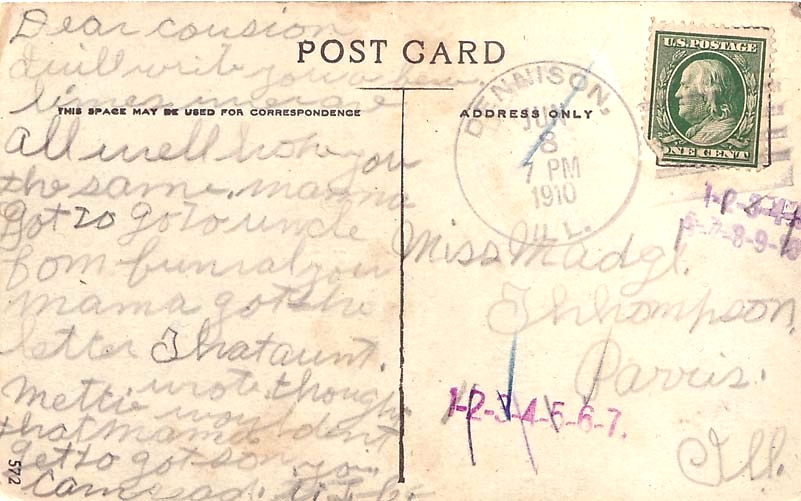 Dear cousion
I will write you a few
lines
all well hope you
the same. mamma
got to go to uncle
funral your
mama got the
letter That aunt.
Mettie wrote. thought
that mama
get to got
POST CARD
THIS SPACE MAY BE USED FOR CORRESPONDENCE
ADDRESS ONLY
DENNISON,
JUN
8
7 PM
1910
ILL.
U.S. POSTAGE
ONE CENT
1-2-3-4-5
6-7-8-9-10
Miss Madgl.
Thhompson,
Parris.
Ill.
1-2-3-4-5-6-7.
572